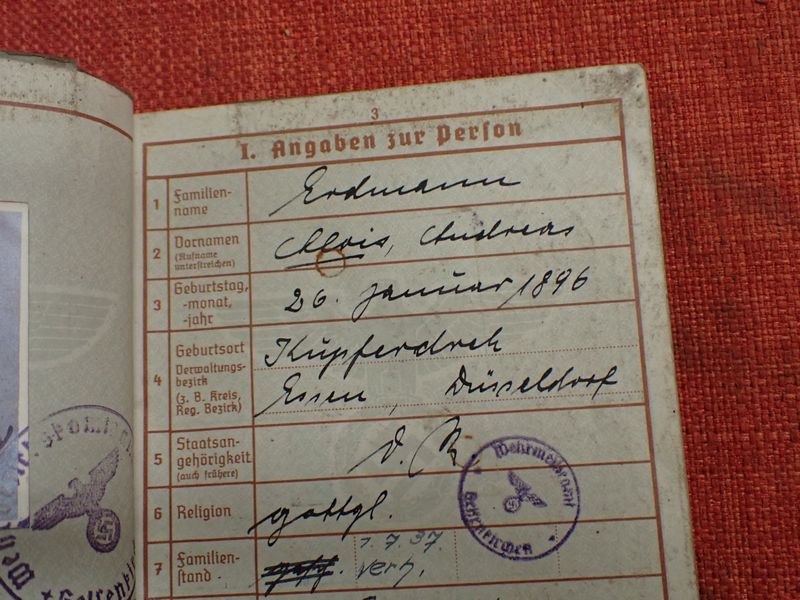 3
I. Angaben zur Person
1 Familien-
name
Erdmann
2 Vornamen
(Rufname
unterstreichen)
Alois, Andreas
3 Geburtstag,
-monat,
-jahr
26. Januar 1896
4 Geburtsort
Verwaltungs-
bezirk
(z. B. Kreis,
Reg. Bezirk)
Kupferdreh
Essen, Düsseldorf
5 Staatsan-
gehörigkeit
(auch frühere)
D. R.
6 Religion
gottgl.
Wehrmeldeamt
Gelsenkirchen
7 Familien-
stand
1.7.37.
verh.